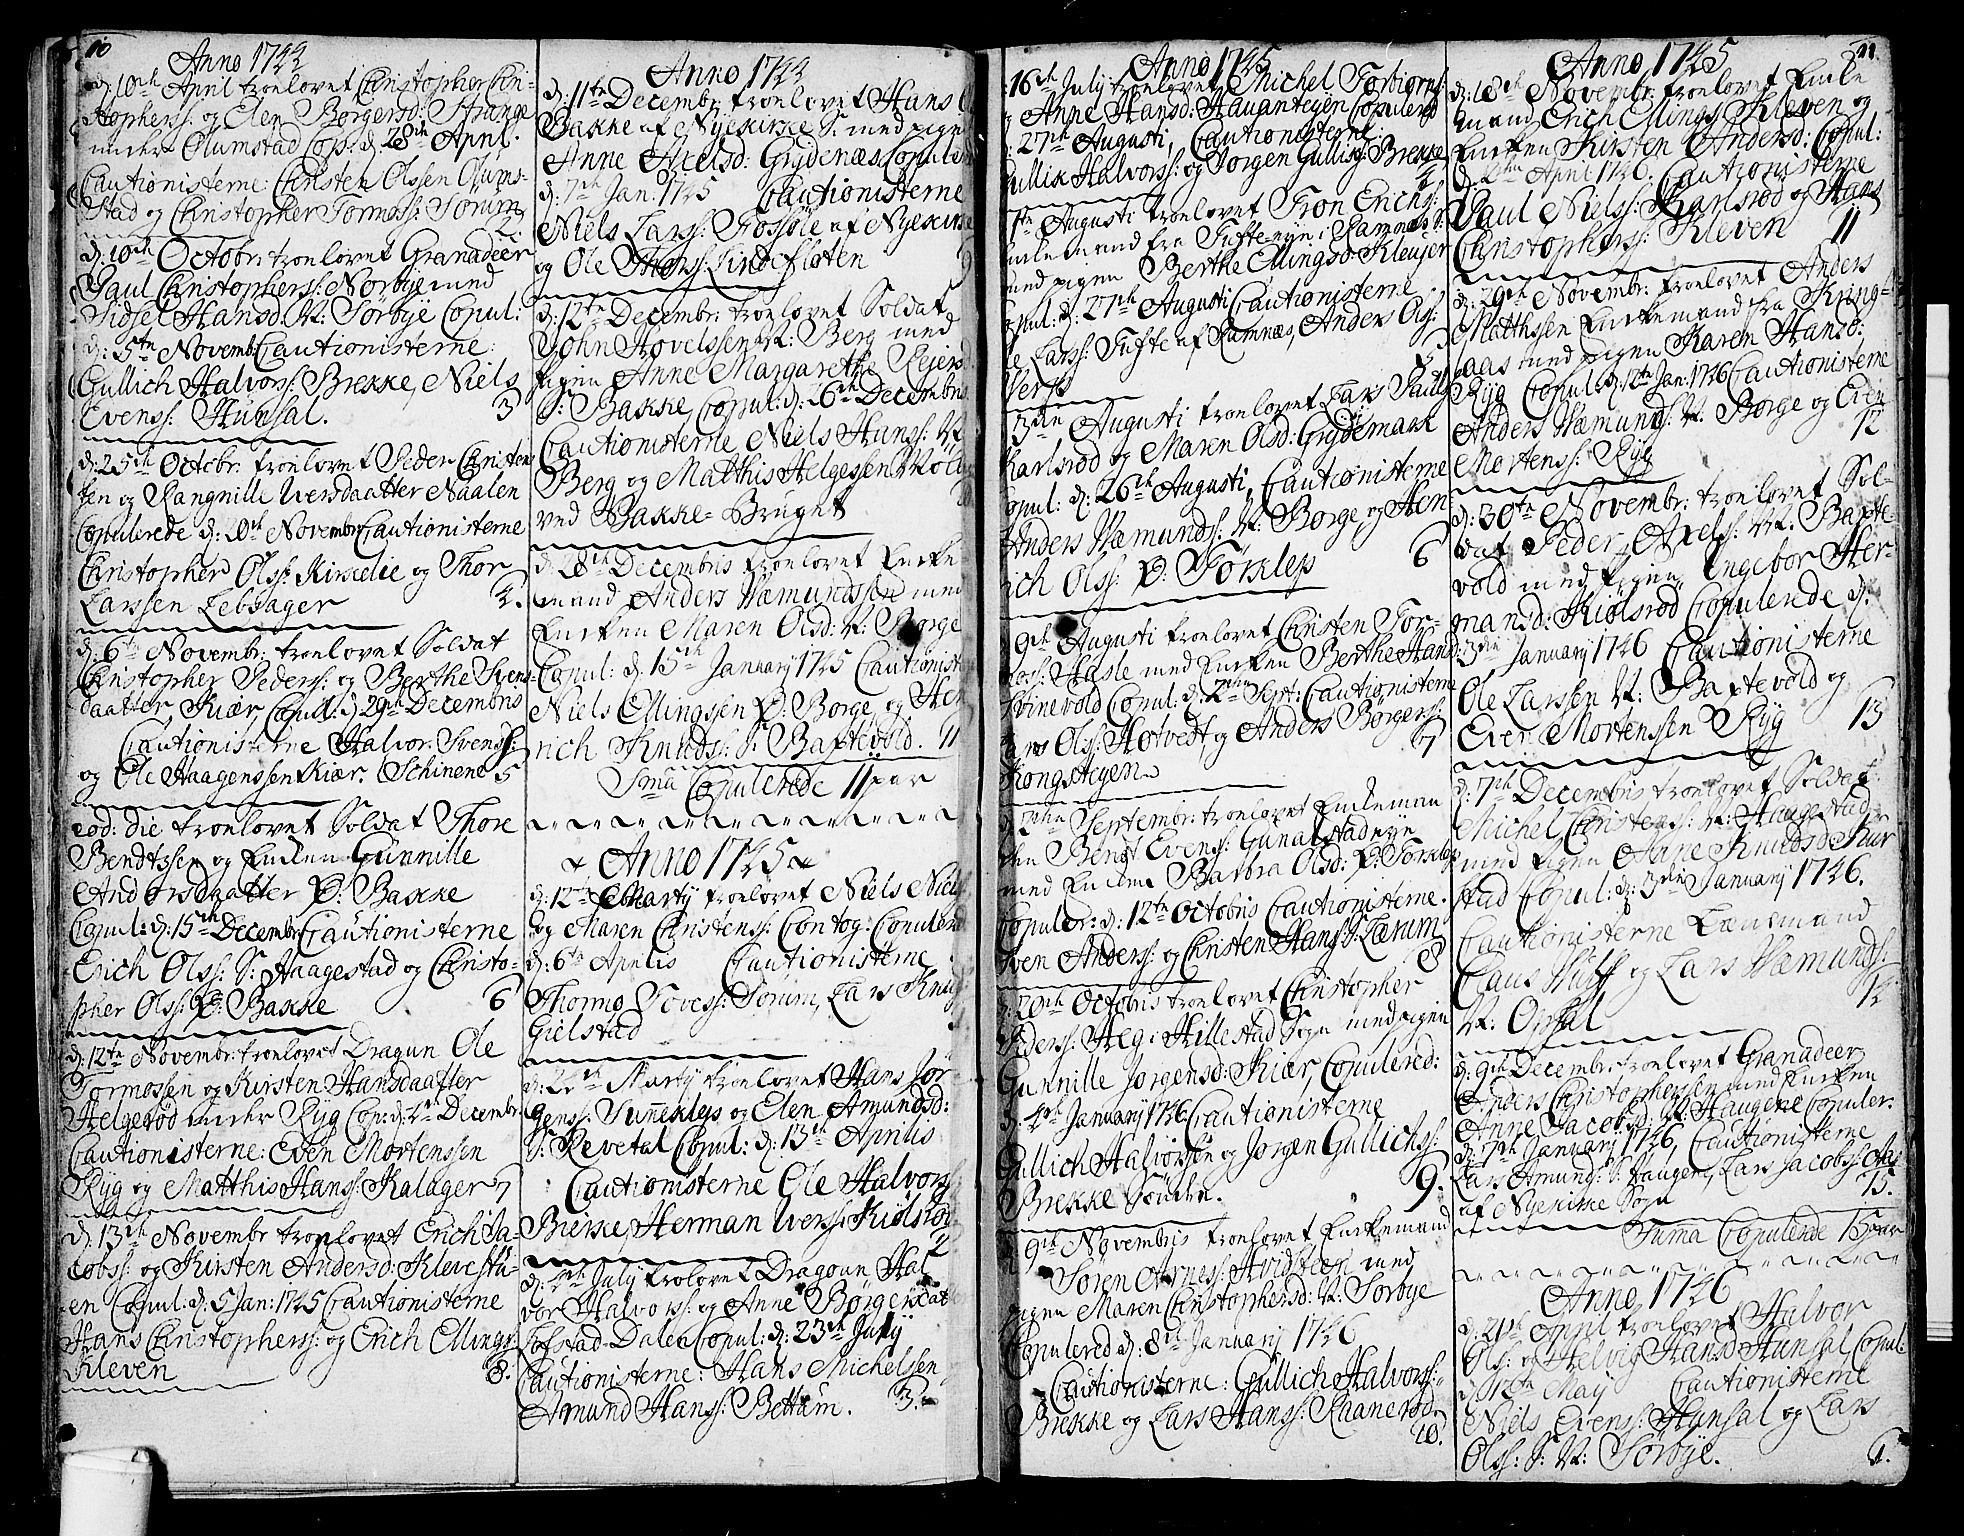 10
Anno 1744
d: 10de April troelovet Christopher Chri-
stophers: og Elen Borgersd: Strange
under Olumstad Cop: d: 28de April.
Cautionisterne: Christen Olssen Olum-
stad og Christopher Tormoss: Sørum
2.
d: 10de Octobr: troelovet Granadeer
Paul Christophers: Nordbye med
Sidsel Hansd: N: Sørbye Copul:
d: 5te Novembr Cautionisterne:
Gullich Halvors: Brekke, Niels
Evens: Hunsal. 3
d: 25de Octobr: troelovet Peder Christen-
sen og Rangnille Iversdaatter Naalen
Copulerede d: 20de Novembr Cautionisterne
Christopher Olss: Kirkelie og Thor
Larssen Lebsager 4.
d: 6te Novembr: troelovet Soldat
Christopher Peders: og Berthe Svens-
daatter Kiær, Copul: d: 29de Decembris
Cautionisterne Halvor Svenss:
og Ole Haagenssen Kiær, Schinene 5
eod: die troelovet Soldat Thore
Bendtssen og Enken Gunnille
Andorsdaatter Ø: Bakke
Copul: d: 15de Decembr: Cautionisterne
Erich Olss: S: Haagestad og Christo-
pher Olss: Ø: Bakke 6
d: 12te Novembr: troelovet Dragun Ole
Tormossen og Kirsten Hansdaatter
Helgerød under Ryg Cop: d: 4de Decembr:
Cautionisterne: Even Mortenssen
Ryg og Matthis Hanss: Kalager 7
d: 13de Novembr troelovet Erich Ja-
cobss: og Kirsten Andersd: Klevestu-
en Copul: d: 5 Jan: 1745 Cautionisterne
Hans Christophers: og Erich Ellings:
Kleven 8.
Anno 1744
d: 11te Decembr: troelovet Hans
Bakke af Nyekirke S: med pigen
Anne Axelsd: Grydenæs Copulerede
d: 7de Jan: 1745 Cautionisterne
Niels Larss: Fossøle af Nyekirke
og Ole Thorss: Lindefløten 9
d: 12te Decembr: troelovet Soldat
John Hovelssen N: Berg med
pigen Anne Margarethe Rejersd:
S: Bakke, Copul: d: 26de Decembris
Cautionisterne Niels Hanss: N:
Berg og Matthis Helgessen Wold
ved Bakke-Bruget 10
d: 28de Decembris troelovet Enke
mand Anders Wæmundssen med
Enken Maren Olsd: N: Borge
Copul: d: 15de January 1745 Cautioniste
Niels Ellingssen Ø: Borge og Hen
rich Knuds: S: Baxtevold. 11
Sma Copulerede 11 par
Anno 1745
d: 12te Marty troelovet Niels Niels
og Maren Christenss: Contog: Copulered
d: 6te Aprilis Cautionisterne
Thormo Tovess: Sørum, Lars Knud
Gielstad
d: 22de Marty troelovet Hans Jør
genss: Sunneklep og Elen Amundsd:
S: Revetal Copul: d: 13de Aprilis
Cautionisterne Ole Halvors:
Bierke, Herman Iverss: Kiølsrød
2
d: 4de July trolovet Dragoun Hal
vor Halvorss: og Anne Borgersdatter
Løfstad-Dalen Copul: d: 23de July
Cautionisterne: Hans Michelsen
Amund Hanss: Bettum. 3.
Anno 1745
16de July troelovet Michel Torbiorns:
og Anne Hansd: Hauantegen Copulered
27de Augusti, Cautionisterne:
Gullik Halvorss: og Jorgen Gulliss: Brekke
4
1te Augusti troelovet Tron Erichs:
Enkemand fra Tufte nye i Ramnes S:
med pigen Berthe Ellingsd: Klevjer
Copul: d: 27de Augusti Cautionisterne
Ole Larss: Tufte af Ramnæs, Anders Olss:
Verp 5
3die Augusti troelovet Lars Pauls
Karlsrød og Maren Olsd: Grydemark
Copul: d: 26de Augusti, Cautionisterne
Anders Wæmunds: N: Borge og Hen
rich Olss: Ø: Torklep 6
9de Augusti troelovet Christen Tor-
moss: Hasle med Enken Berthe Hansd:
Svinevold Copul: d: 2den Sept: Cautionisterne
Lars Olss: Hotvedt og Anders Borgers:
Kongstegen 7
d: 2den Septembr: troelovet Enkeman
den Bengt Evens: Gunnarstad nye
med Enken Barbra Olsd: Ø: Torklep
Copuler: d: 12te Octobris Cautionisterne.
Sven Anderss: og Christen Hanss: S: Lærum
8
d: 20de Octobris troelovet Christopher
Pederss: Aeg i Hillestad Sogn med pigen
Gunnille Jorgensd: Kiær, Copulered:
d: 4de January 1746 Cautionisterne
Gullich Halvorsen og Jorgen Gullichss:
Brekke Sønden. 9.
9de Novembris troelovet Enkemand
Søren Arness: Hvidsteen med
pigen Maren Christophersd: N: Sørbye
Copulered d: 8de January 1746
Cautionisterne: Gullich Halvorss:
Brekke og Lars Hanss: Raanerød
10.
11.
Anno 1745
d: 18de Novembr: troelovet Enke
mand Erich Ellings: Kleven og
Enken Kirsten Andersd: Copul:
d: April 1746. Cautionisterne
Paul Nielss: Karlsrød og Hans
Christophers: Kleven 11
d: 29de Novembr: troelovet Anders
Matthssen Enkemand fra Kring-
laas med pigen Karen Hansd:
Ryg Copul: d: 12te Jan: 1746 Cautionisterne
Anders Wæmunds: N: Borge og Even
Mortenss: Ryg 12
d: 30te Novembr: troelovet Sol-
dat Peder Axels: N: Baxte-
vold med pigen Ingebor Her-
mansd: Kiølsrød Copulerede d:
3die January 1746 Cautionisterne
Ole Larssen N: Baxtevold og
Even Mortenssen Ryg 13
d: 7de Decembris troelovet Soldat
Michel Christenss: N: Haagestad
med pigen Anne Knudsd: Skur
stad Copul: d: 3die January 1746.
Cautionisterne Lænsmand
Claus Wulf og Lars Wæmunds:
N: Opsal 14
d: 9de Decembr: troelovet Granadeer
Anders Christophersen med Enken
Anne Jacobsd: N: Haugene Copuler:
d: 7de January 1746, Cautionisterne
Lars Amunds: S: Haugene, Lars Jacobss: Aas
af Nyekirke Sogn 15.
Suma Copulerede 15 par
Anno 1746
d: 21de April troelovet Halvor
Olss: og Helvig Hansd: Hunsal Copul:
d: 12te May Cautionisterne
Niels Evenss: Hunsal og Lars
Olss: S: N: Sørbye. 1.